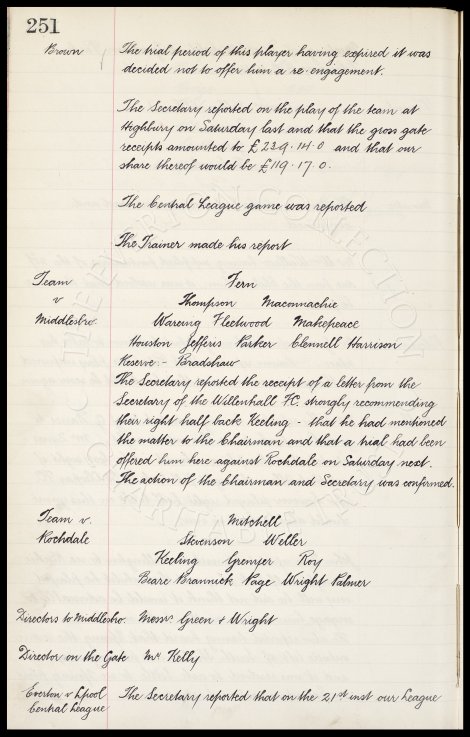 251
Brown The trial period of this player having expired it was
decided not to offer him a re-engagement.
The Secretary reported on the play of the team at
Highbury on Saturday last and that the gross gate
receipts amounted to £239.14.0 and that our
share thereof would be £119.17.0.
The Central League game was reported
The Trainer made his report
Team Fern
v Thompson Maconnachie
Middlesbro. Wareing Fleetwood Makepeace
Houston Jefferis Parker Clennell Harrison
Reserve - Bradshaw
The Secretary reported the receipt of a letter from the
Secretary of the Willenhall F.C. strongly recommending
their right half back Keeling - that he had mentioned
the matter to the Chairman and that a trial had been
offered him here against Rochdale on Saturday next.
The action of the Chairman and Secretary was confirmed.
Team v. Mitchell
Rochdale Stevenson Weller
Keeling Grenyer Roy
Beare Brannick Page Wright Palmer
Directors to Middlesbro. Messrs. Green & Wright
Director on the Gate Mr Kelly
Everton v L'pool The Secretary reported that on the 21st inst our League
Central League